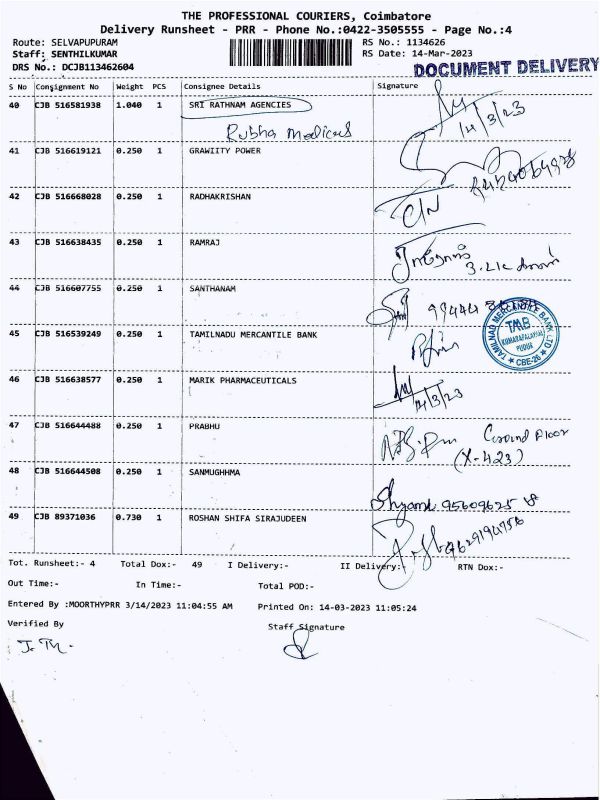 THE PROFESSIONAL COURIERS, Coimbatore
Delivery Runsheet - PRR - Phone No.:0422-3505555 - Page No.:4
Route: SELVAPUPURAM RS No.: 1134626
Staff: SENTHILKUMAR RS Date: 14-Mar-2023
DRS No.: DCJB113462604 DOCUMENT DELIVERY
S No Consignment No Weight PCS Consignee Details Signature
40 CJB 516581938 1.040 1 SRI RATHNAM AGENCIES 14/3/23
Rubha Medicals
41 CJB 516619121 0.250 1 GRAWIITY POWER
42 CJB 516668028 0.250 1 RADHAKRISHAN
43 CJB 516638435 0.250 1 RAMRAJ
44 CJB 516607755 0.250 1 SANTHANAM
45 CJB 516539249 0.250 1 TAMILNADU MERCANTILE BANK
TAMILNAD MERCANTILE BANK LTD
TMB
PUDUR
CBE-26
46 CJB 516638577 0.250 1 MARIK PHARMACEUTICALS 14/3/23
47 CJB 516644488 0.250 1 PRABHU Ground Floor
(X-423)
48 CJB 516644508 0.250 1 SANMUGHHMA
49 CJB 89371036 0.730 1 ROSHAN SHIFA SIRAJUDEEN
Tot. Runsheet:- 4 Total Dox:- 49 I Delivery:- II Delivery:- RTN Dox:-
Out Time:- In Time:- Total POD:-
Entered By :MOORTHYPRR 3/14/2023 11:04:55 AM Printed On: 14-03-2023 11:05:24
Verified By Staff Signature